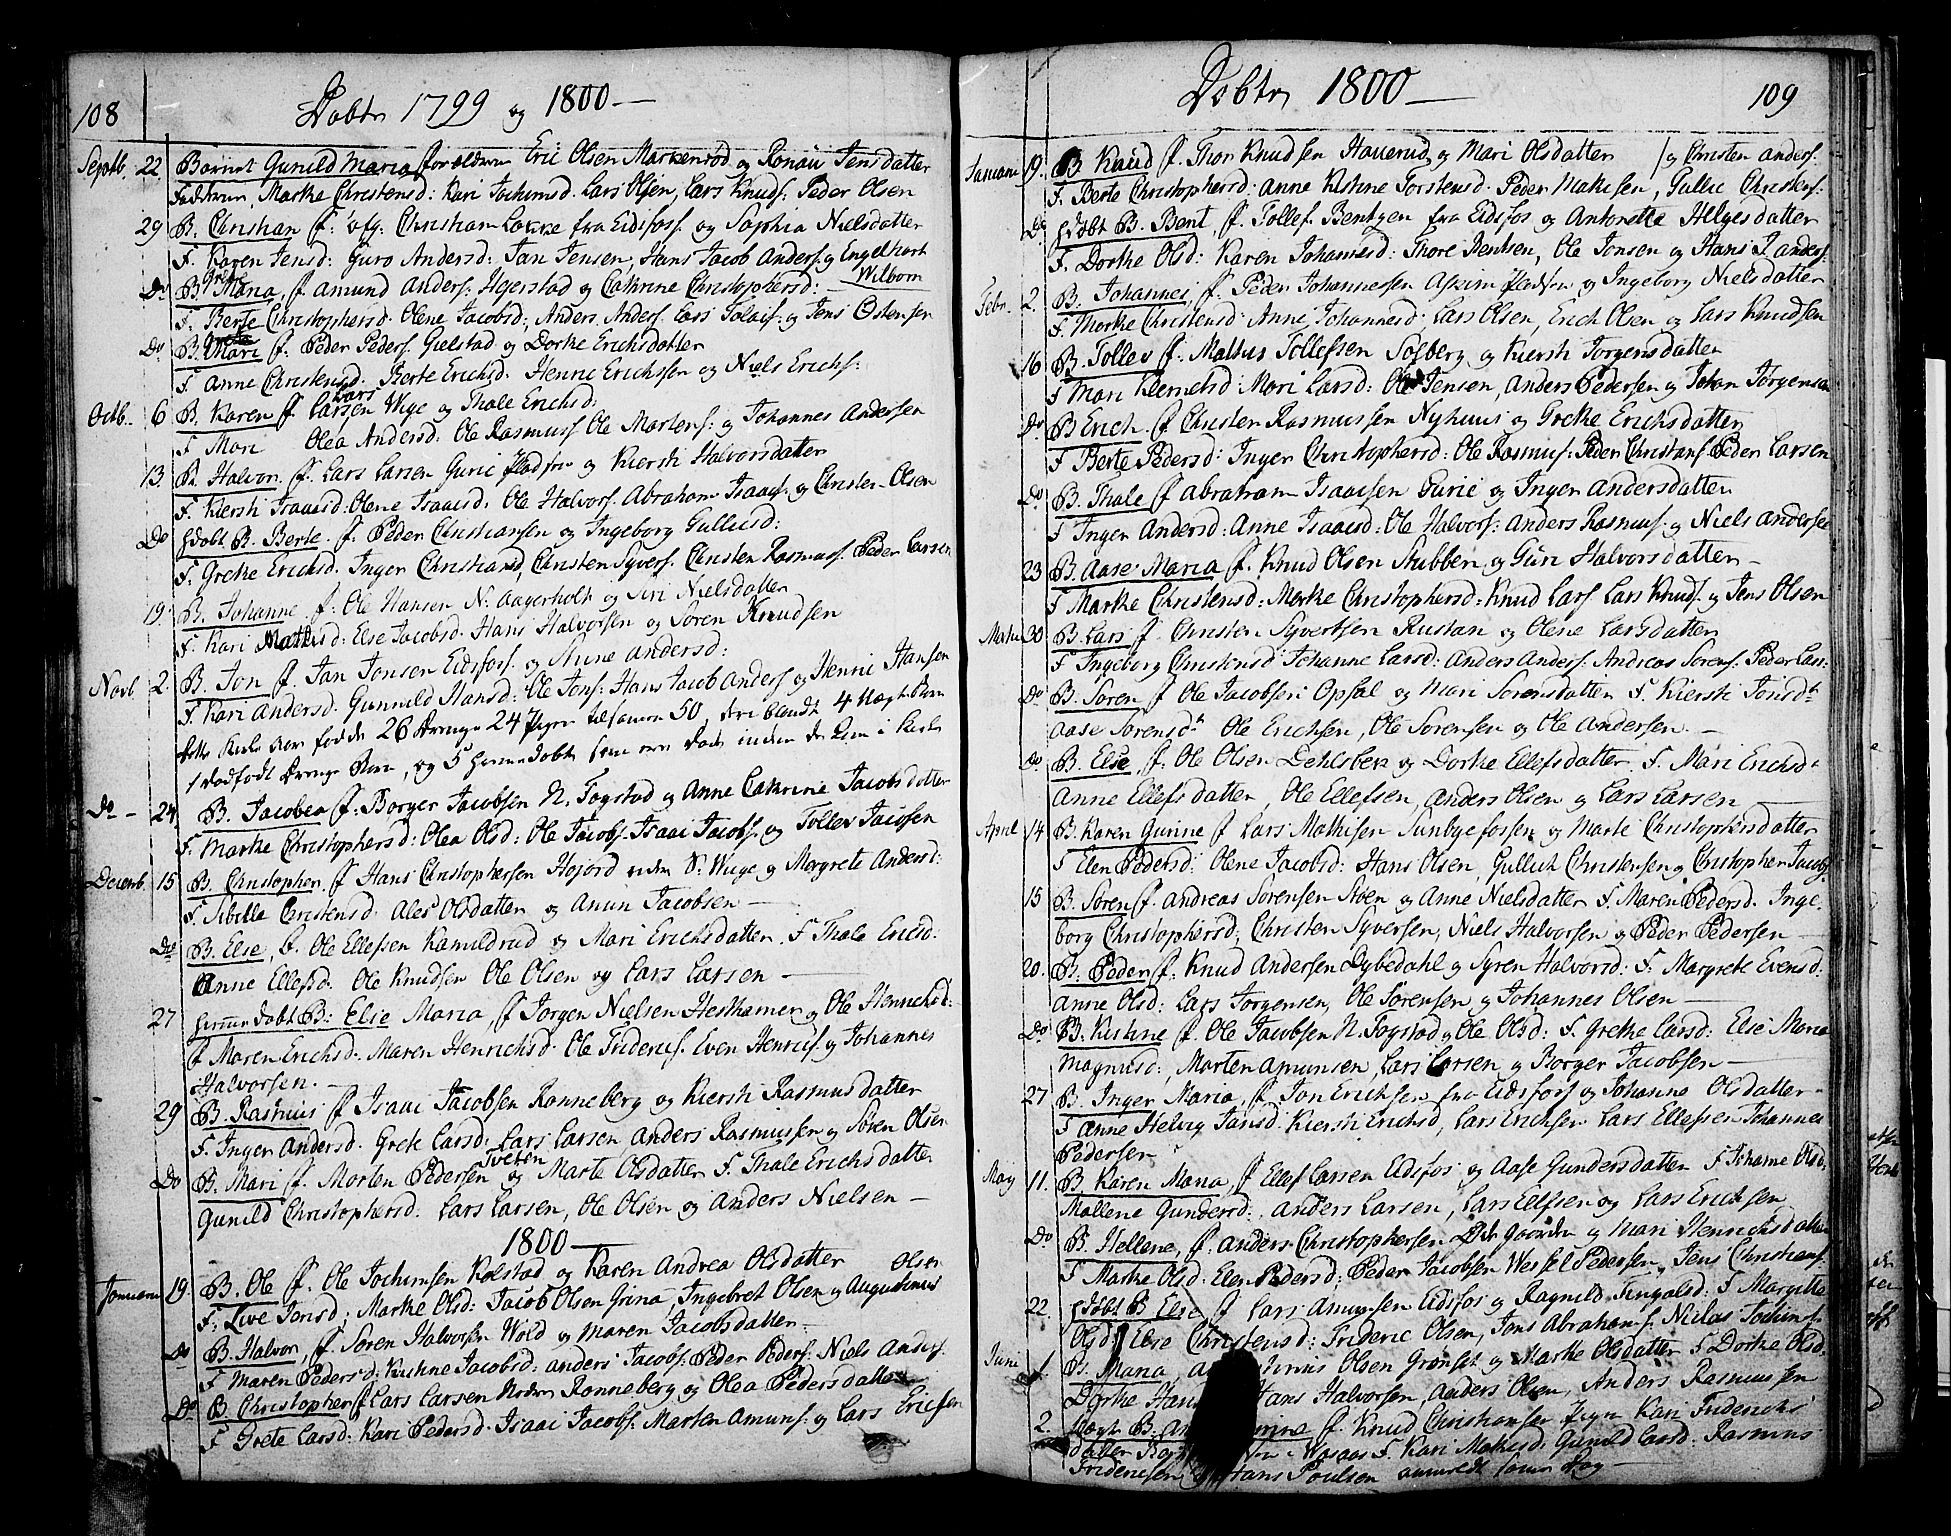 108
Døbte 1799 og 1800 —
Septb. 22 Barnet Gunild Maria forældrene Eric Olsen Markerød og Ronau Jensdatter
Faddrene, Marke Christensd: Kari Jochumsd. Lars Olsen, Lars Knuds: Peder Olsen
29 B. Christian f: Christian Løkke fra Eidsfoss og Sophia Nielsdatter
F. Karen Jensd: Guro Andersd: Jan Jensen, Hans Jacob Anders: og Engelhart Wilborn
Do B. Maria, f Amund Anders: Hejerstad og Cathrine Christophersd: —
F. Berte Christophersd. Olene Jacobsd: Anders Anders: Lars Tolais: og Jens Ostensen
Do B. Mari f: Peder Peders: Gielstad og Dorke Erichsdatter
F Anne Christensd. Berte Erichsd. Henric Erichsen og Niels Erichs:
Octb. 6 B. Karen f Lars Larsen Wige og Thale Erichsd:
F Mari Olea Andersd: Ole Rasmuss Ole Martens: og Johannes Andersen
13. B. Halvor f. Lars Larsen Gurie og Kiersti Halvorsdatter
F. Kiersti Isaacsd: Olene Isaacsd. Ole Halvors: Abraham Isaacs: og Christen Olsen
Do B. Berte f. Peder Christiansen og Ingeborg Gullusd:
F. Grethe Erichsd. Inger Christiansd, Christen Syvers. Christen Rasmuss. Peder Larsen
19. B. Johanne f: Ole Hansen N: Aagerholt og Siri Nielsdatter
F. Kari Mathisd: Else Jacobsd. Hans Halvorsen og Søren Knudsen
Novb. 2. B. Jon f Jan Jonsen Eidsfoss. og Anne Andersd:
F. Kari Andersd. Gunnild Hansd: Ole Jons: Hans Jacob Anders: og Henric Hansen
fødde 26 Drenge 24 Piger tilsamen 50, deri blandt 4
1 dødfødt Drenge Barn, og 5 hiemedøbt som var døde inden de kom i Kirke
Do — 24. B. Jacobea f: Borger Jacobsen N. Fogstad og Anne Cathrine Jacobsdatter
F. Marke Christophersd: Olea Olsd: Ole Jacobs. Isaac Jacobs: og Tollev Jacobsen
Decemb. 15 B. Christopher f Hans Christophersen Hojord under S: Wige og Margrete Andersd:
F. Sibille Christensd. Ales Olsdatter og Amun Jacobsen —
Do B. Else, f. Ole Ellefsen Kamildrud og Mari Erichsdatter. F Thale Ericsd:
Anne Ellefsd. Ole Knudsen Ole Olsen og Lars Larsen —
27 hiemedøbt B: Else Maria, f Jørgen Nielsen Hesthamer og Ole Henrichsd:
f Maren Erichsd: Maren Henrichsd. Ole Friderichs. Even Henrics: og Johannes
Halvorsen. —
29 B. Rasmus f Isaac Jacobsen Ronneberg og Kiersti Rasmusdatter
F. Inger Andersd. Grete Larsd: Lars Larsen Anders Rasmussen og Søren Olsen
Do B. Mari f Morten Pedersen Tveten og Marte Olsdatter F. Thale Erichsdatter
Gunild Christophersd: Lars Larsen, Ole Olsen og Anders Nielsen —
1800 —
Januarii 19. B. Ole f. Ole Jochumsen Kolstad og Karen Andrea Olsdatter Olsen
F. Live Jensd; Marke Olsd: Jacob Olsen Grina, Ingebret Olsen og Augustenus
Do B. Halvor, f. Søren Halvorsen Wold og Maren Jacobsdatter —
F Maren Pedersd: Kirstine Jacobsd: Anders Jacobs: Peder Peders: Niels Anders.
Do B. Christopher f Lars Larsen Ronneberg og Olea Pedersdatter
F Grete Larsd: Kari Pedersd: Isaac Jacobs: Marten Amuns: og Lars Ericsen
Døbte 1800 — 109
Januarii 19. B Knud f. Thor Knudsen Hauerud og Mari Olsdatter / og Christen Anders:
F. Berte Christophersd: Anne Kistine Torstensd. Peder Mathisen, Gullic Christens:
Do hdøbt B. Bent, f. Tollef Bentsen fra Eidsfos og Antonette Helgesdatter
F. Dorke Olsd: Karen Johannesd: Thore Jentsen, Ole Jonsen og Hans J Anders:
Febr. 2. B. Johannes f. Peder Johannessen Askim og Ingeborg Nielsdatter
F Marke Christensd: Anne Johannesd: Lars Olsen, Erich Olsen og Lars Knudsen
16 B. Tollev f. Mathis Tollefsen Solberg og Kiersti Jorgensdatter
F Mari Klemetsd: Mari Larsd: Ole Jensen, Anders Pedersen og Johan Jörgensen
Do B Erich. f Christen Rasmussen Nyhuus og Grethe Erichsdatter
F Berte Pedersd: Inger Christophersd: Ole Rasmus: Peder Christians Peder Larsen
Do. B. Thale f Abraham Isaacsen Gurie og Inger Andersdatter
F Inger Andersd: Anne Isaacsd: Ole Halvors: Anders Rasmus: og Niels Andersen
23 B. Aase Maria f. Knud Olsen Stubben og Guri Halvorsdatter —
F Marke Christensd: Marke Christophersd: Knud Lars Lars Knuds. og Jens Olsen
Martii 30 B. Lars f. Christen Syvertsen Rustan og Olene Larsdatter
F Ingeborg Christensd Johanne Larsd: Anders Anders: Andreas Sorens: Peder Lars:
Do B. Søren f Ole Jacobsen Opsal og Mari Sorensdatter F. Kiersti Jonsdtr
Aase Sorensdtr Ole Erichsen, Ole Sorensen og Ole Andersen. —
Do B. Else, f. Ole Olsen Dehlsbek og Dorke Ellefsdatter F. Mari Erichsd.
Anne Ellefsdatter, Ole Ellefsen, Anders Olsen og Lars Larsen —
April 14 B. Karen Gurine f Lars Mathisen Sunbyefossen og Marte Christophersdatter
F Elen Pedersd: Olene Jacobsd: Hans Olsen, Gullich Christensen og Christopher Jacobs
15 B. Søren f. Andreas Sørensen Stoen og Anne Nielsdatter F. Maren Pedersd. Inge-
borg Christophersd; Christen Syversen, Niels Halvorsen og Peder Pedersen —
20. B. Peder f. Knud Andersen Dybedahl og Syren Halvorsd: F. Margrete Evensd:
Anne Olsd: Lars Jorgensen, Ole Sørensen og Johannes Olsen —
Do B. Kistine f. Ole Jacobsen N. Fogstad og Ole Olsd: F. Grethe Larsd: Else Maria
Magnusd:, Morten Amunsen, Lars Larsen og Borger Jacobsen —
27 B. Inger Maria, f Jon Erichsen fra Eidsfos og Johanne Olsdatter —
F Anne Helvig Jansd. Kiersti Erichsd, Lars Erichsen Lars Ellefsen Johannes
Pedersen
May 11. B Karen Maria, f Ellef Larsen Eidsfos og Aase Gundersdatter F Johanne Olsd.
Mallene Gundersd:, Anders Larsen, Lars Ellefsen og Lars Erichsen
Do B. Hellene, f. Anders Christophersen og Mari Henrichsdatter
F Marke Olsd: Elen Pedersd: Peder Jacobsen Wessel Pedersen, Jens Christians.
22 hdøbt B Else f Lars Amunsen Eidsfos og Ragnild Tingalsd: F Margitte
Olsd: Else Christensd: Frideric Olsen, Jens Abrahams. Niclas Jochums:
Juni 1. B. Maria, Olsen Grønset og Marke Olsdatter F Dorke Olsd.
Dorthe Hans Hans Halvorsen, Anders Olsen, Anders Rasmussen
2. B. An f. Knud Christiansen Kari Friderichs
datter F. Kari Mathisd: Gunild Larsd. Rasmus
Fridericsen og Hans Poulsen